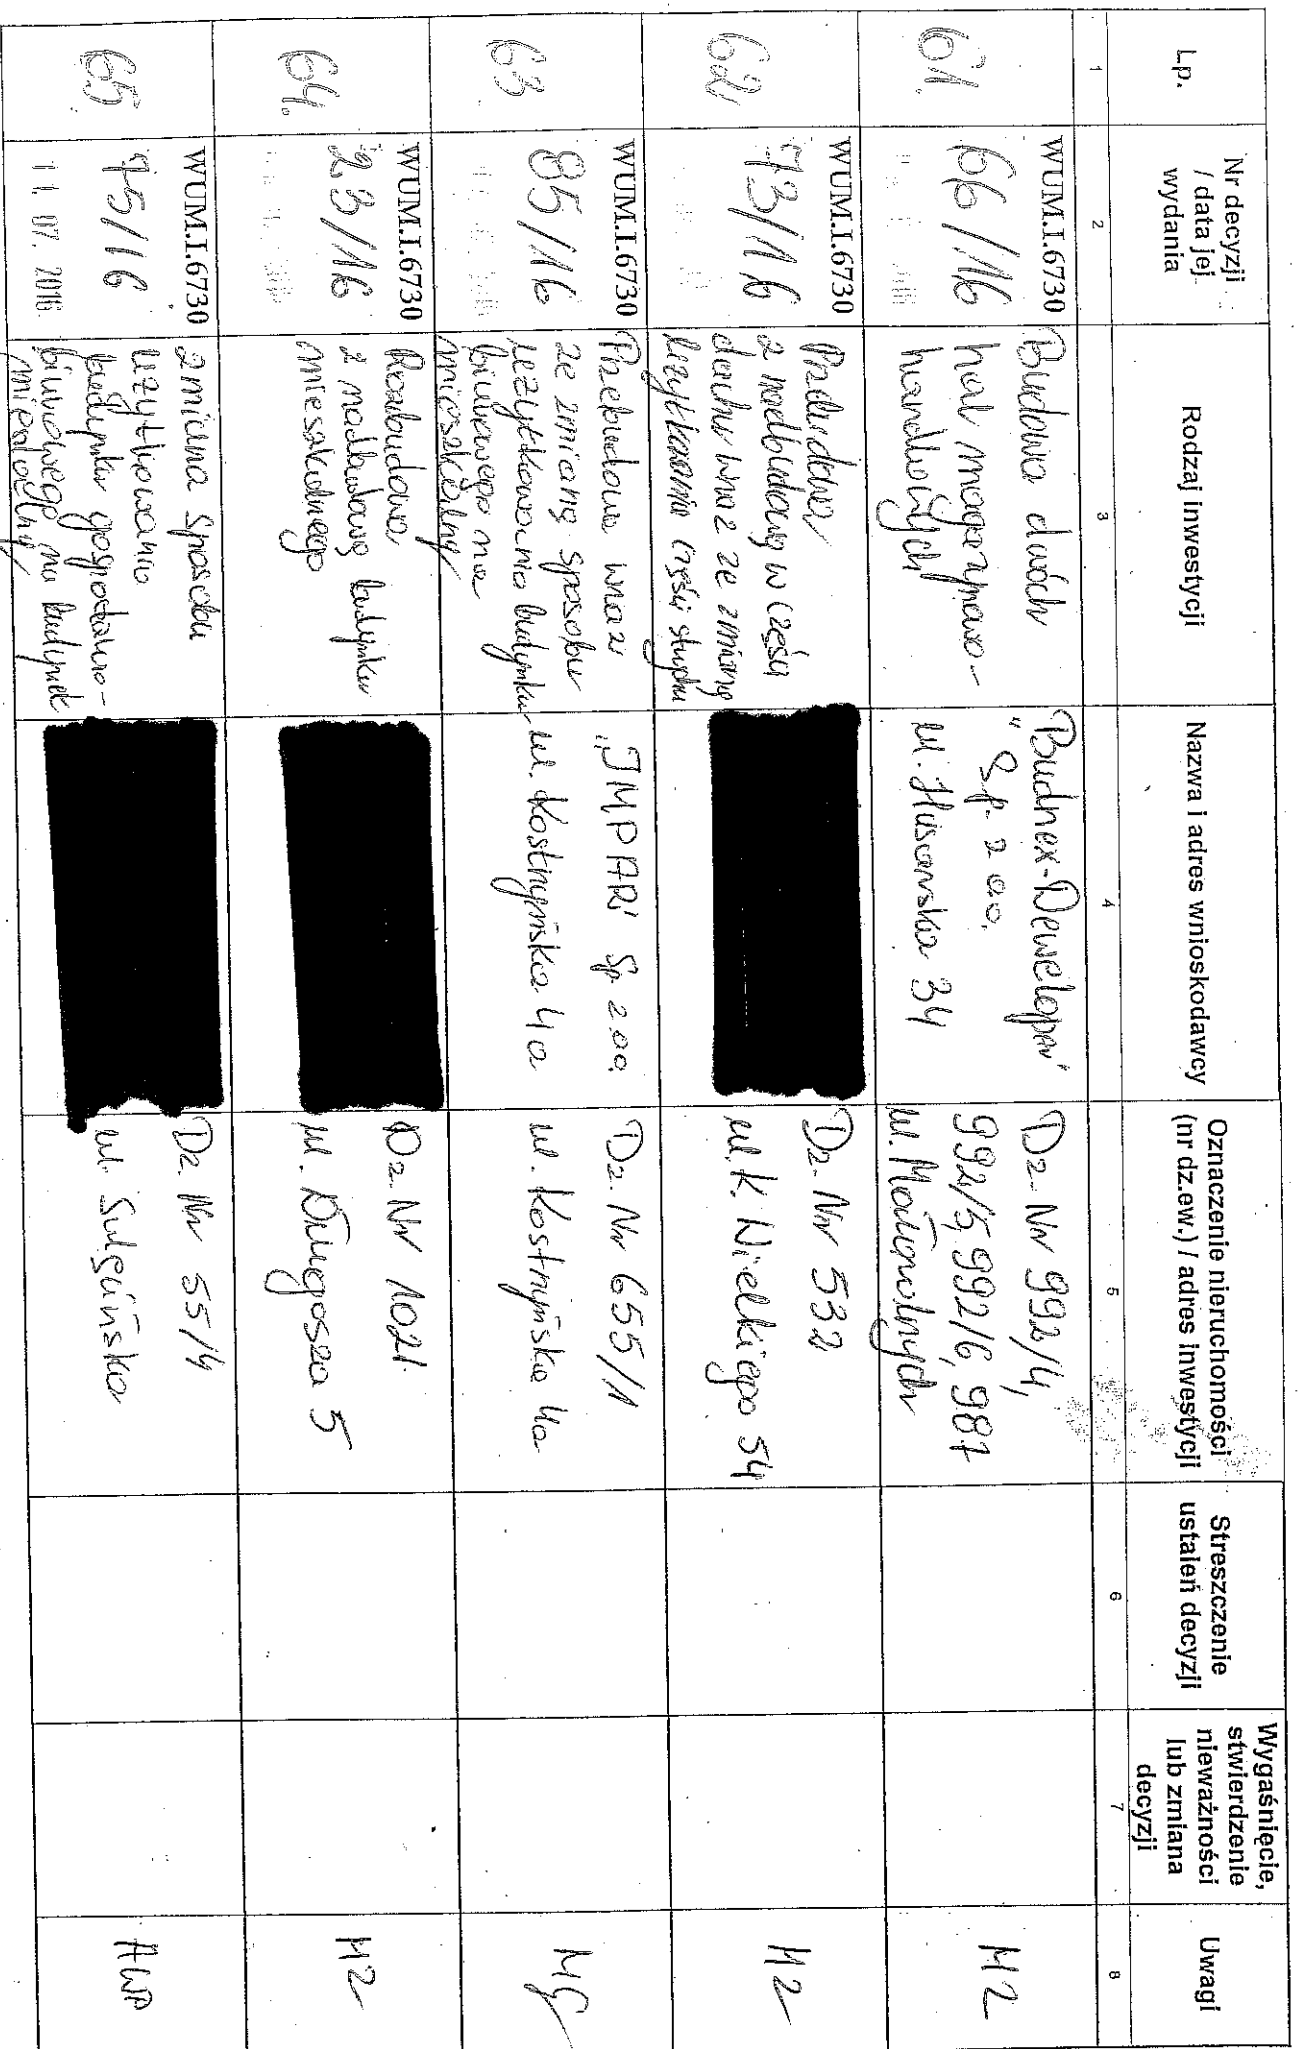 Lp.
Nr decyzji
/ data jej
wydania
Rodzaj inwestycji
Nazwa i adres wnioskodawcy
Oznaczenie nieruchomości
(nr dz.ew.) / adres inwestycji
Streszczenie
ustaleń decyzji
Wygaśnięcie,
stwierdzenie
nieważności
lub zmiana
decyzji
Uwagi
1
2
3
4
5
6
7
8
61.
WUM.I.6730
66/16
Budowa dwóch
hal magazynowo-
handlowych
"Budnex-Deweloper"
Sp. z o.o.
ul. 34
Dz. Nr 992/4,
992/5, 992/6, 987
ul. Małopolnych
MZ
62.
WUM.I.6730
73/16
Przebudowa
z nadbudową w części
dachu wraz ze zmianą
użytkowania części strychu
Dz. Nr 532
ul. K. Wielkiego 54
MZ
63
WUM.I.6730
85/16
Przebudowa wraz
ze zmianą sposobu
użytkowania budynku
biurowego na
mieszkalny
"IMPARI Sp. z o.o.
ul. Kostrzyńska 4a
Dz. Nr 655/1
ul. Kostrzyńska 4a
MG
64.
WUM.I.6730
23/16
Rozbudowa
z nadbudową budynku
mieszkalnego
Dz. Nr 1021.
ul. Długosza 5
MZ
65
WUM.I.6730
75/16
11. 07. 2016
zmiana sposobu
użytkowania
budynku gospodarczo-
biurowego na budynek
mieszkalny
Dz. Nr 55/4
ul. Sulęcińska
AWP